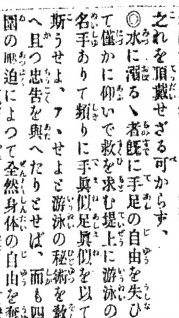 之れを頂戴せざる可からず、
◎水に溺るゝ者既に手足の自由を失ひ
て僅かに仰いで救を求む堤上に游泳の
名手ありて頻りに手眞似足眞似を以て
斯うせよ、アヽせよと游泳の秘術を敎
へ且つ忠告を與へたりとせば、而も四
圍の壓迫によつて全然身体の自由を奪